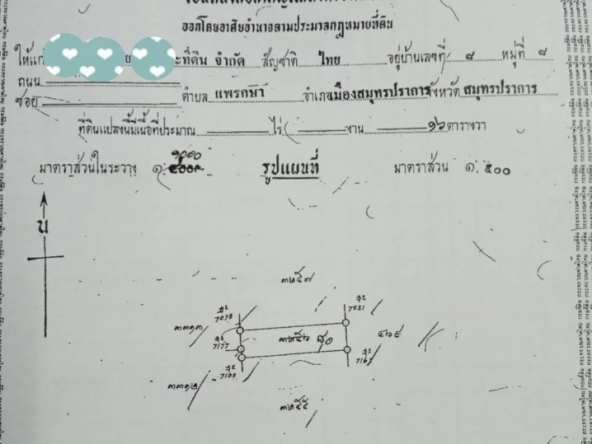 ออกโดยอาศัยอำนาจตามประมวลกฎหมายที่ดิน
ให้แก่ ที่ดิน จำกัด สัญชาติ ไทย อยู่บ้านเลขที่ ๘ หมู่ที่ ๘
ถนน
ซอย ตำบล แพรกษา อำเภอเมืองสมุทรปราการ จังหวัด สมุทรปราการ
ที่ดินแปลงนี้มีเนื้อที่ประมาณ ไร่ งาน ๑๖ ตารางวา
๑๐๐๐
มาตราส่วนในระวาง ๑: รูปแผนที่ มาตราส่วน ๑: ๕๐๐
น
๓๒๕๗
7021
๓๓๑๓
7177
๓๓๑๒
๓๒๕๕